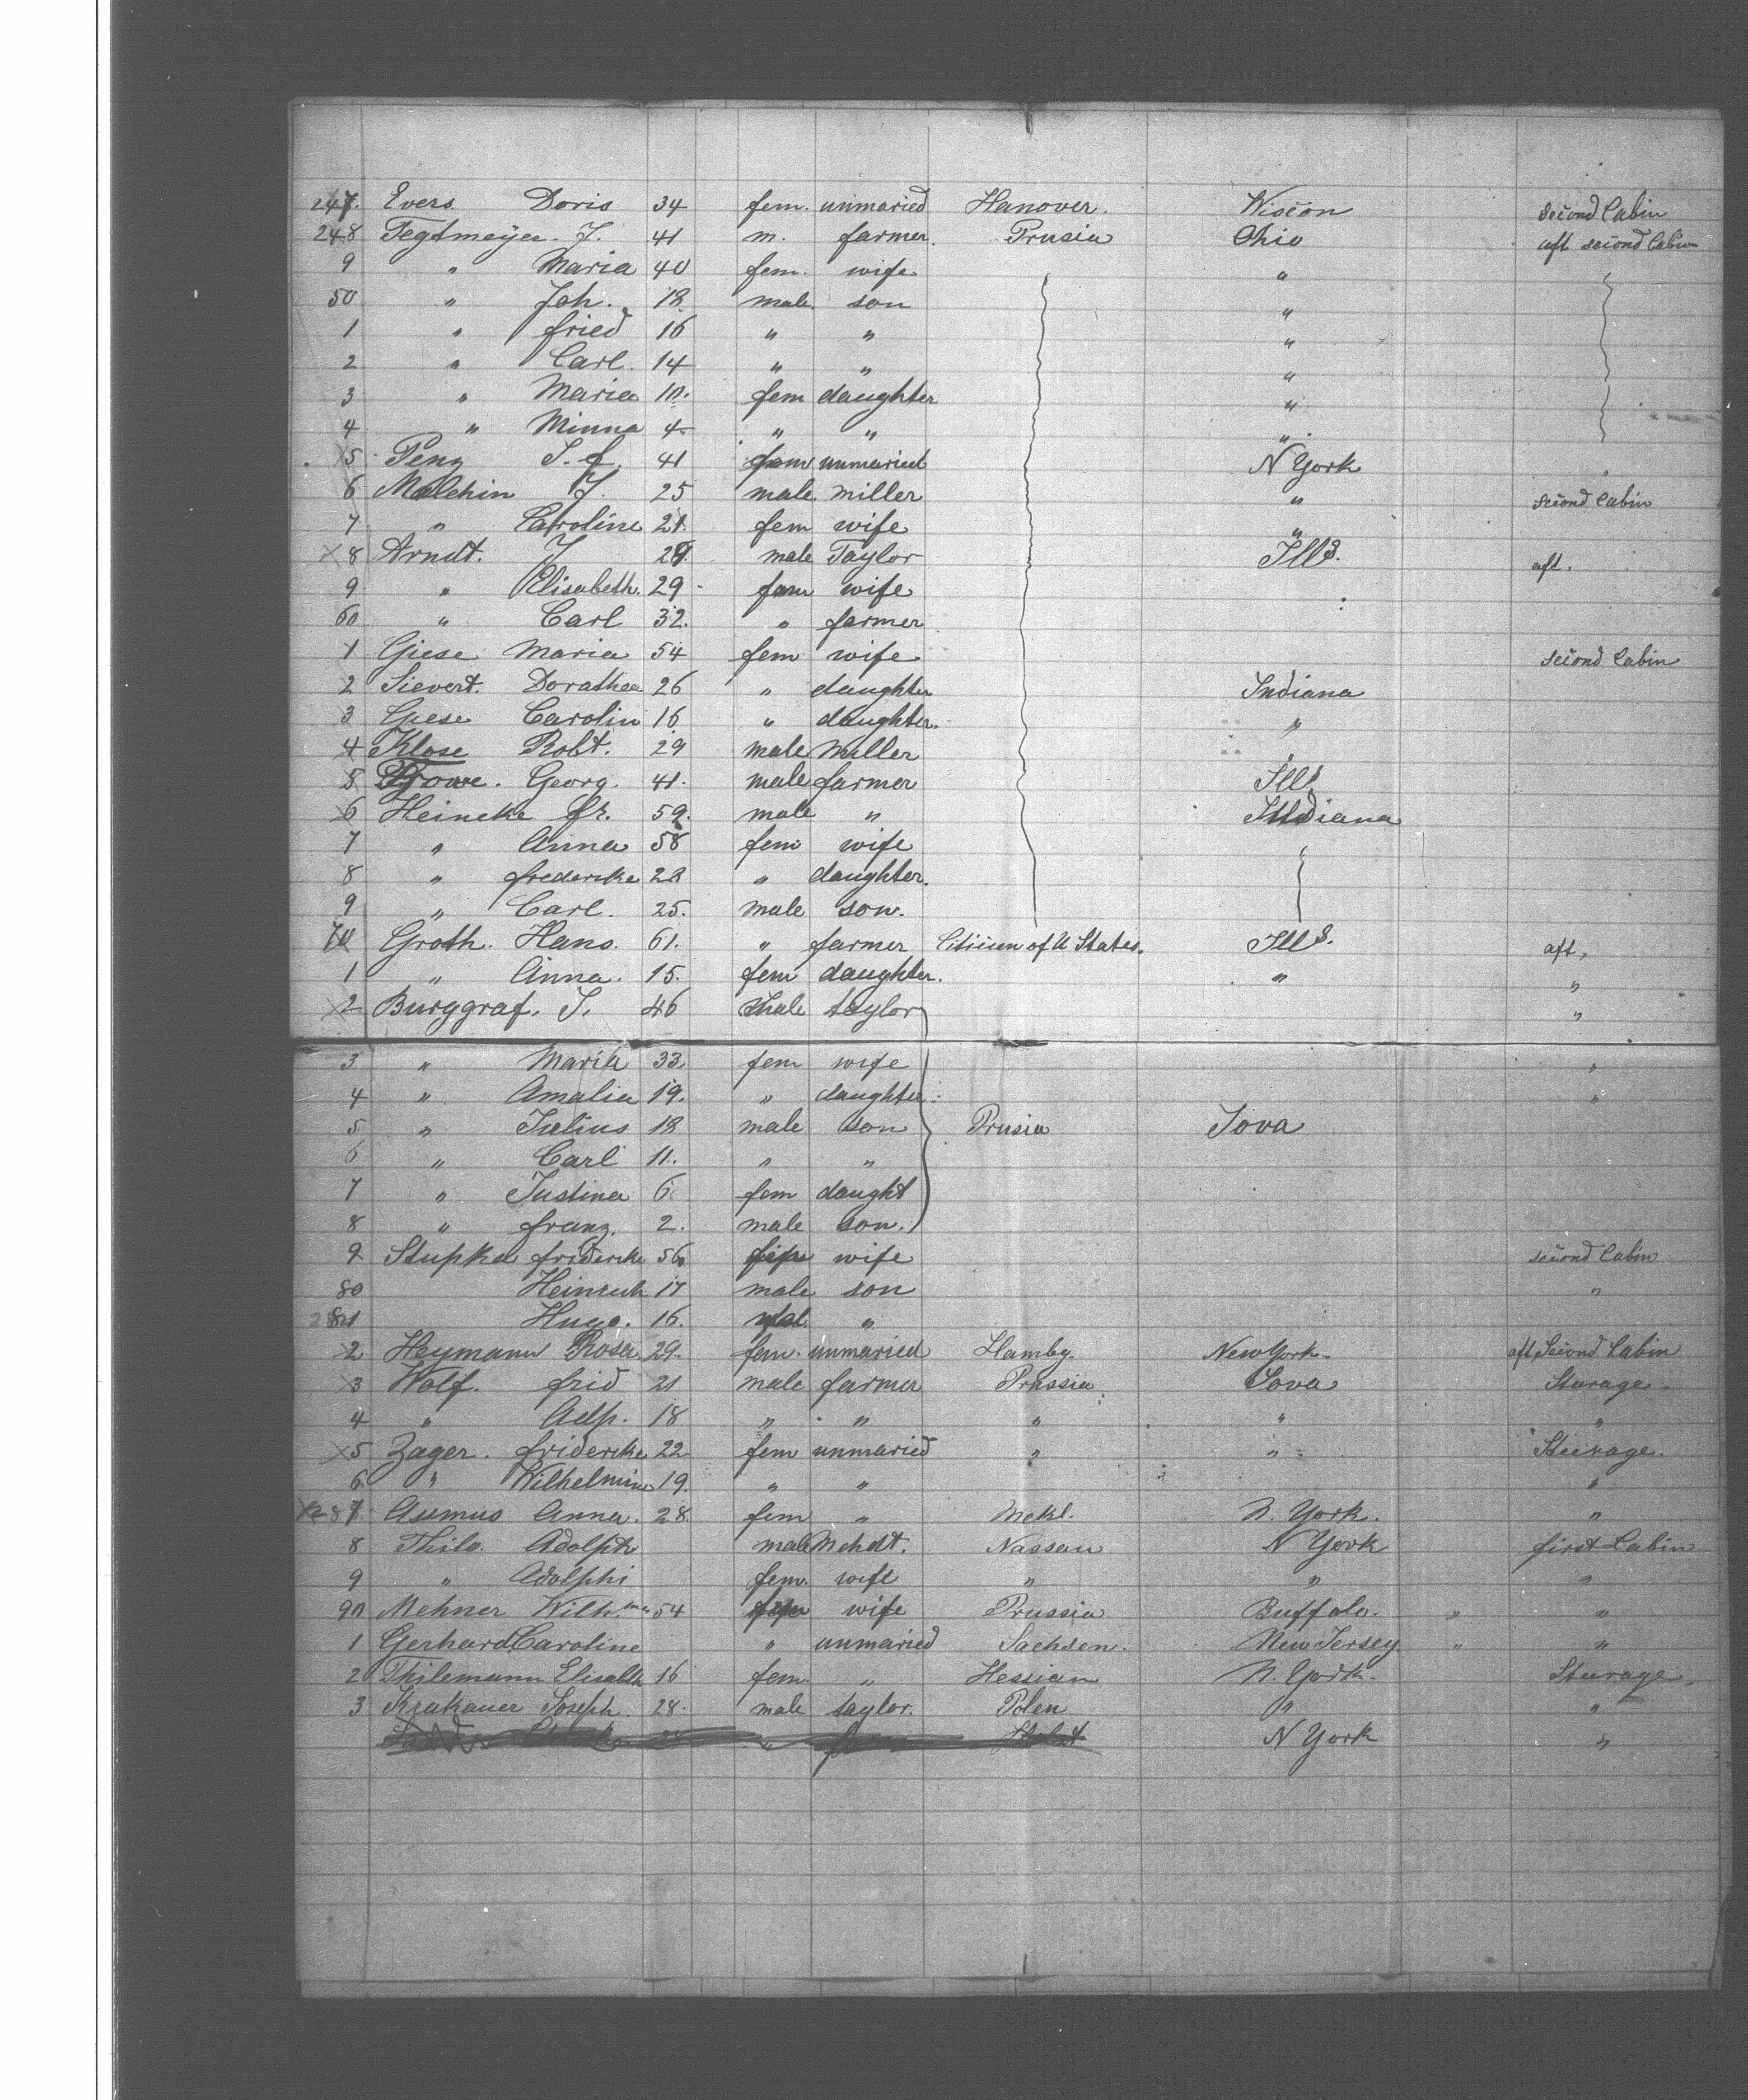 247. Evers. Doris 34 fem. unmaried Hanover. Wiscon second Cabin
248 Tegtmeyer. J. 41 m. farmer. Prusia Ohio aft second Cabin
9 " Maria 40 fem. wife "
50 " Joh. 18 male. son "
1 " fried 16 " " "
2 " Carl. 14 " " "
3 " Maria 10. fem daughter "
4 " Minna 4 " " "
5 Penz J. f. 41 fem unmaried N York "
6 Malchin J. 25 male. miller " second Cabin
7 " Caroline 21. fem wife "
8 Arndt. J 29. male Taylor Ills. aft.
9 " Elisabeth. 29 fem wife
60 " Carl 32. " farmer
1 Giese Maria 54 fem wife second Cabin
2 Sievert. Dorathea 26 " daughter Indiana
3 Giese Carolin 16 " daughter. "
4 Klose Robt. 29 male Miller "
5 Georg. 41. male farmer Ill
6 Heineke fr. 59. male " Indiana
7 " Anna 58 fem wife
8 " frederike 28 " daughter.
9 " Carl. 25. male son.
70 Groth. Hans. 61. " farmer Citisen of U States. Ills. aft,
1 " Anna. 15. fem daughter. " "
2 Burggraf. J. 46 male taylor "
3 " Maria 33 fem wife "
4 " Amalia 19. " daughter "
5 " Julius 18 male son Prusia Iova
6 " Carl 11. " "
7 " Justina 6. fem daught
8 " franz. 2. male son.
9 Stupka friderike 56 fem wife second Cabin
80 Heinrich 17 male son "
281 Hugo. 16. mal. "
2 Heymann Rosa. 29. fem. unmaried Hambg. New York aft, Second Cabin
3 Wolf. frid 21 male farmer Prussia Iova Sturage.
4 " Adp. 18 " " " " "
5 Zager. friderike 22 fem unmaried " " Steerage.
6. " Wilhelmine 19. " " "
287 Asmus Anna. 28. fem " Mekl. N. York. "
8 Thilo. Adolph male Mchdt. Nassau N York first Cabin
9 " Adolphi fem. wife " " "
90 Mehner Wilh.ine 54 fem wife Prussia Buffalo. " "
1 Gerhard Caroline " unmaried Sachsen. New Jersey " "
2 Thilemann Elisabth 16 fem. " Hessian N. York. Sturage.
3 Krakauer Joseph. 28. male taylor. Polen " "
" N York "